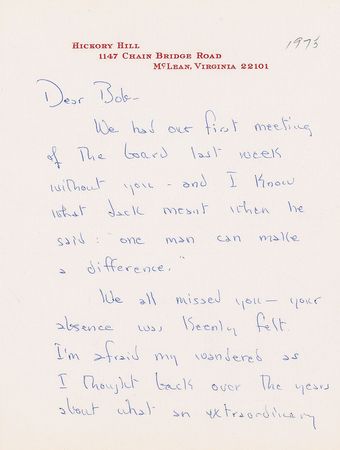 HICKORY HILL
1147 CHAIN BRIDGE ROAD
MCLEAN, VIRGINIA 22101
1975
Dear Bob—
We had our first meeting
of the board last week
without you - and I know
what Jack meant when he
said: "one man can make
a difference."
We all missed you — your
absence was keenly felt.
I'm afraid my wandered as
I thought back over the years
about what an extraordinary